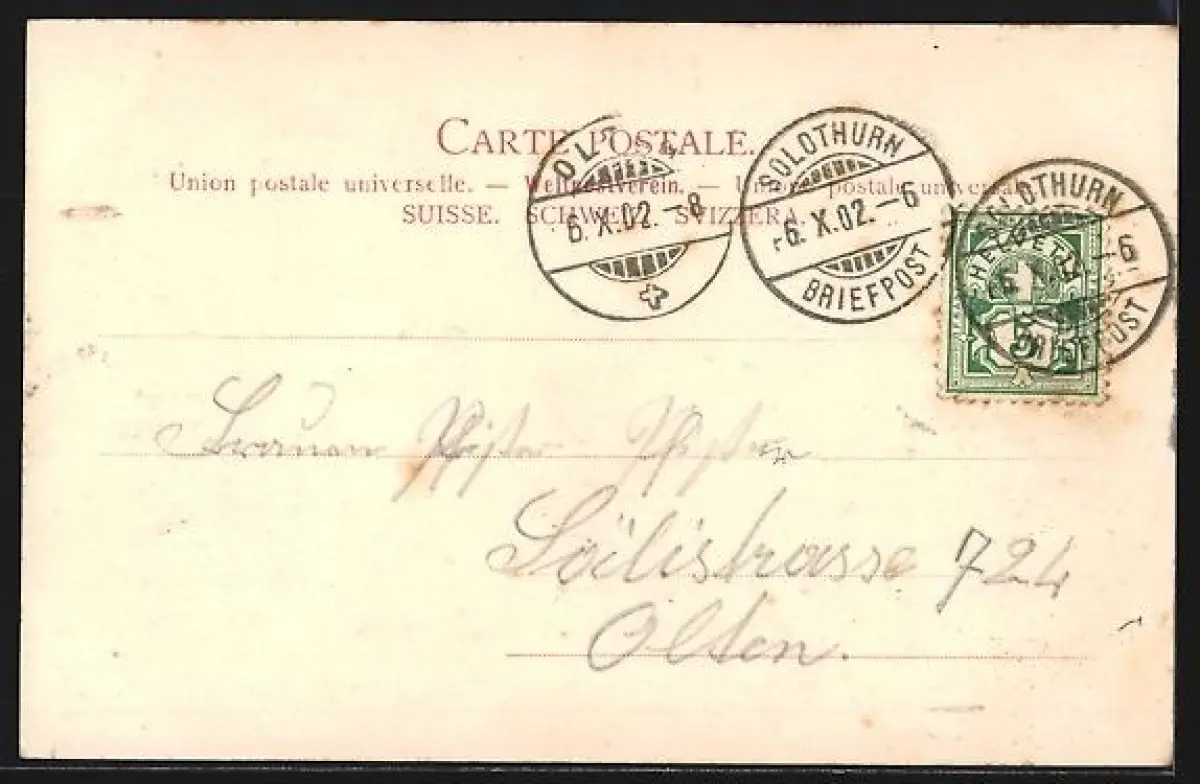 CARTE POSTALE.
Union postale universelle. — Weltpostverein. — Unione postale universale.
SUISSE. SCHWEIZ. SVIZZERA.
OLT 4
6. X. 02. – 8
SOLOTHURN
6. X. 02. – 6
BRIEFPOST
SOLOTHURN
– 6
BRIEFPOST
HELVETIA
5
Pfister
Sälistrasse 724
Olten.